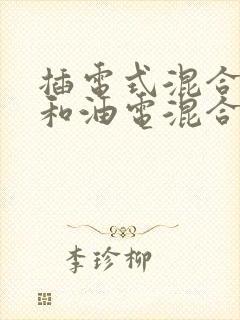 插電式混合
和油電混合
李珍柳